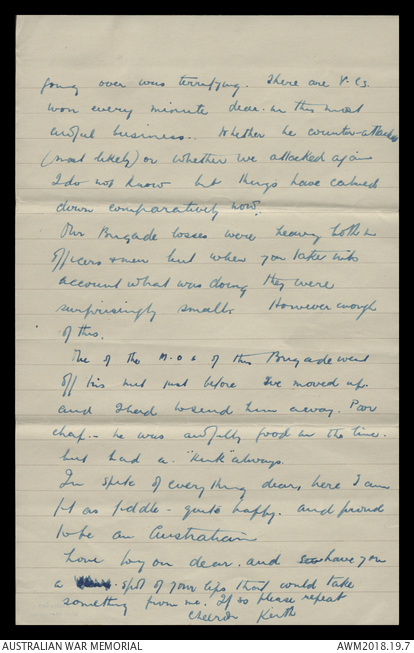 going over was terrifying. There are V.Cs.
won every minute dear in this most
awful business. Whether he counter-attacked
(most likely) or whether we attacked again
I do not know but things have calmed
down comparatively now.
Our Brigade losses were heavy both in
officers & men but when you take into
account what was doing they were
surprisingly small. However enough
of this.
One of the M.O.s of this Brigade went
off his nut just before we moved up.
and I had to send him away. Poor
chap - he was awfully good in the line.
but had a "kink" always.
In spite of everything dear, here I am
fit as fiddle - quite happy. and proud
to be an Australian
Love to you dear. and have you
a spot of your lips that would take
something from me. If so please repeat
Cheerio Keith
AUSTRALIAN WAR MEMORIAL
AWM2018.19.7